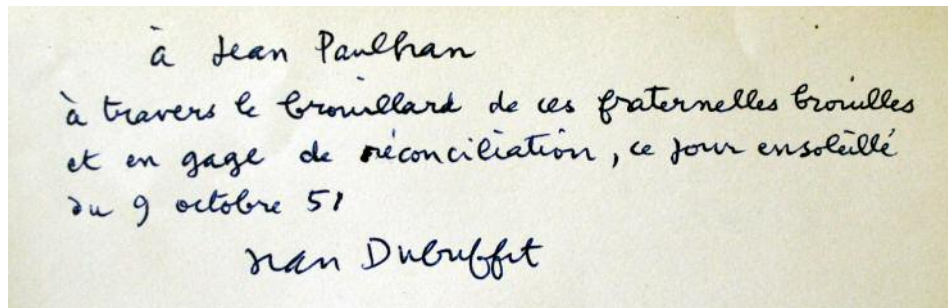 à Jean Paulhan
à travers le brouillard de ces fraternelles brouilles
et en gage de réconciliation, ce jour ensoleillé
du 9 octobre 51
Jean Dubuffet